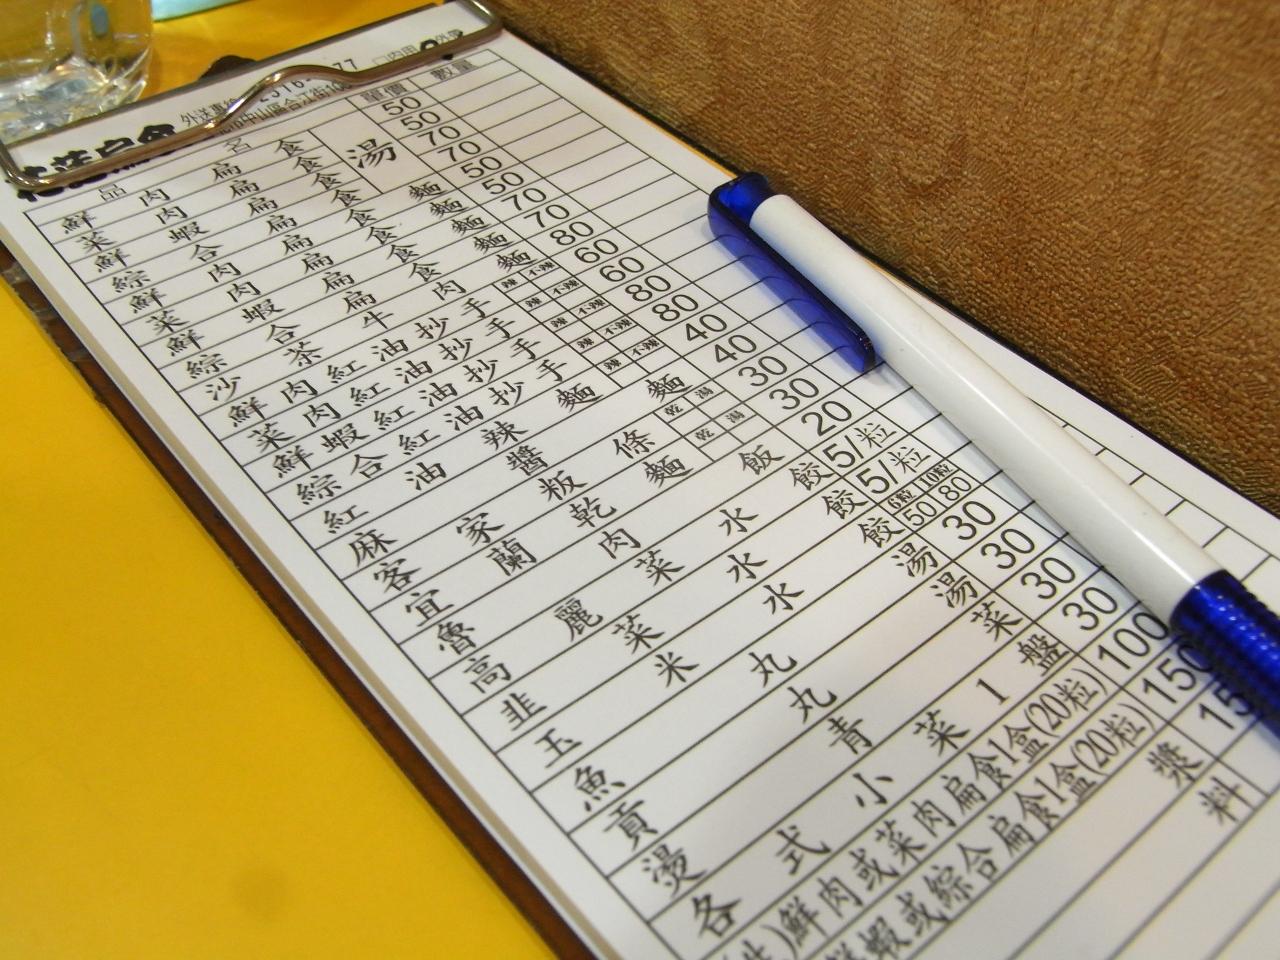 外送專線
中山區合江街10
口內用 外帶
品 名 單價 數量
鮮肉扁食 湯 50
菜肉扁食 50
鮮蝦扁食 70
綜合扁食 70
鮮肉扁食麵 50
菜肉扁食麵 50
鮮蝦扁食麵 70
綜合扁食麵 70
沙茶牛肉麵 80
鮮肉紅油抄手 辣 不辣 60
菜肉紅油抄手 辣 不辣 60
鮮蝦紅油抄手 辣 不辣 80
綜合紅油抄手 辣 不辣 80
紅油辣麵 40
麻醬麵 40
客家粄條 乾 湯 30
宜蘭乾麵 乾 湯 30
魯肉飯 20
高麗菜水餃 5/粒
韭菜水餃 5/粒
玉米水餃 6粒 50 10粒 80
魚丸湯 30
貢丸湯 30
燙青菜 30
各式小菜1盤 30
鮮肉或菜肉扁食1盒(20粒) 100
鮮蝦或綜合扁食1盒(20粒) 150
漿 15
料